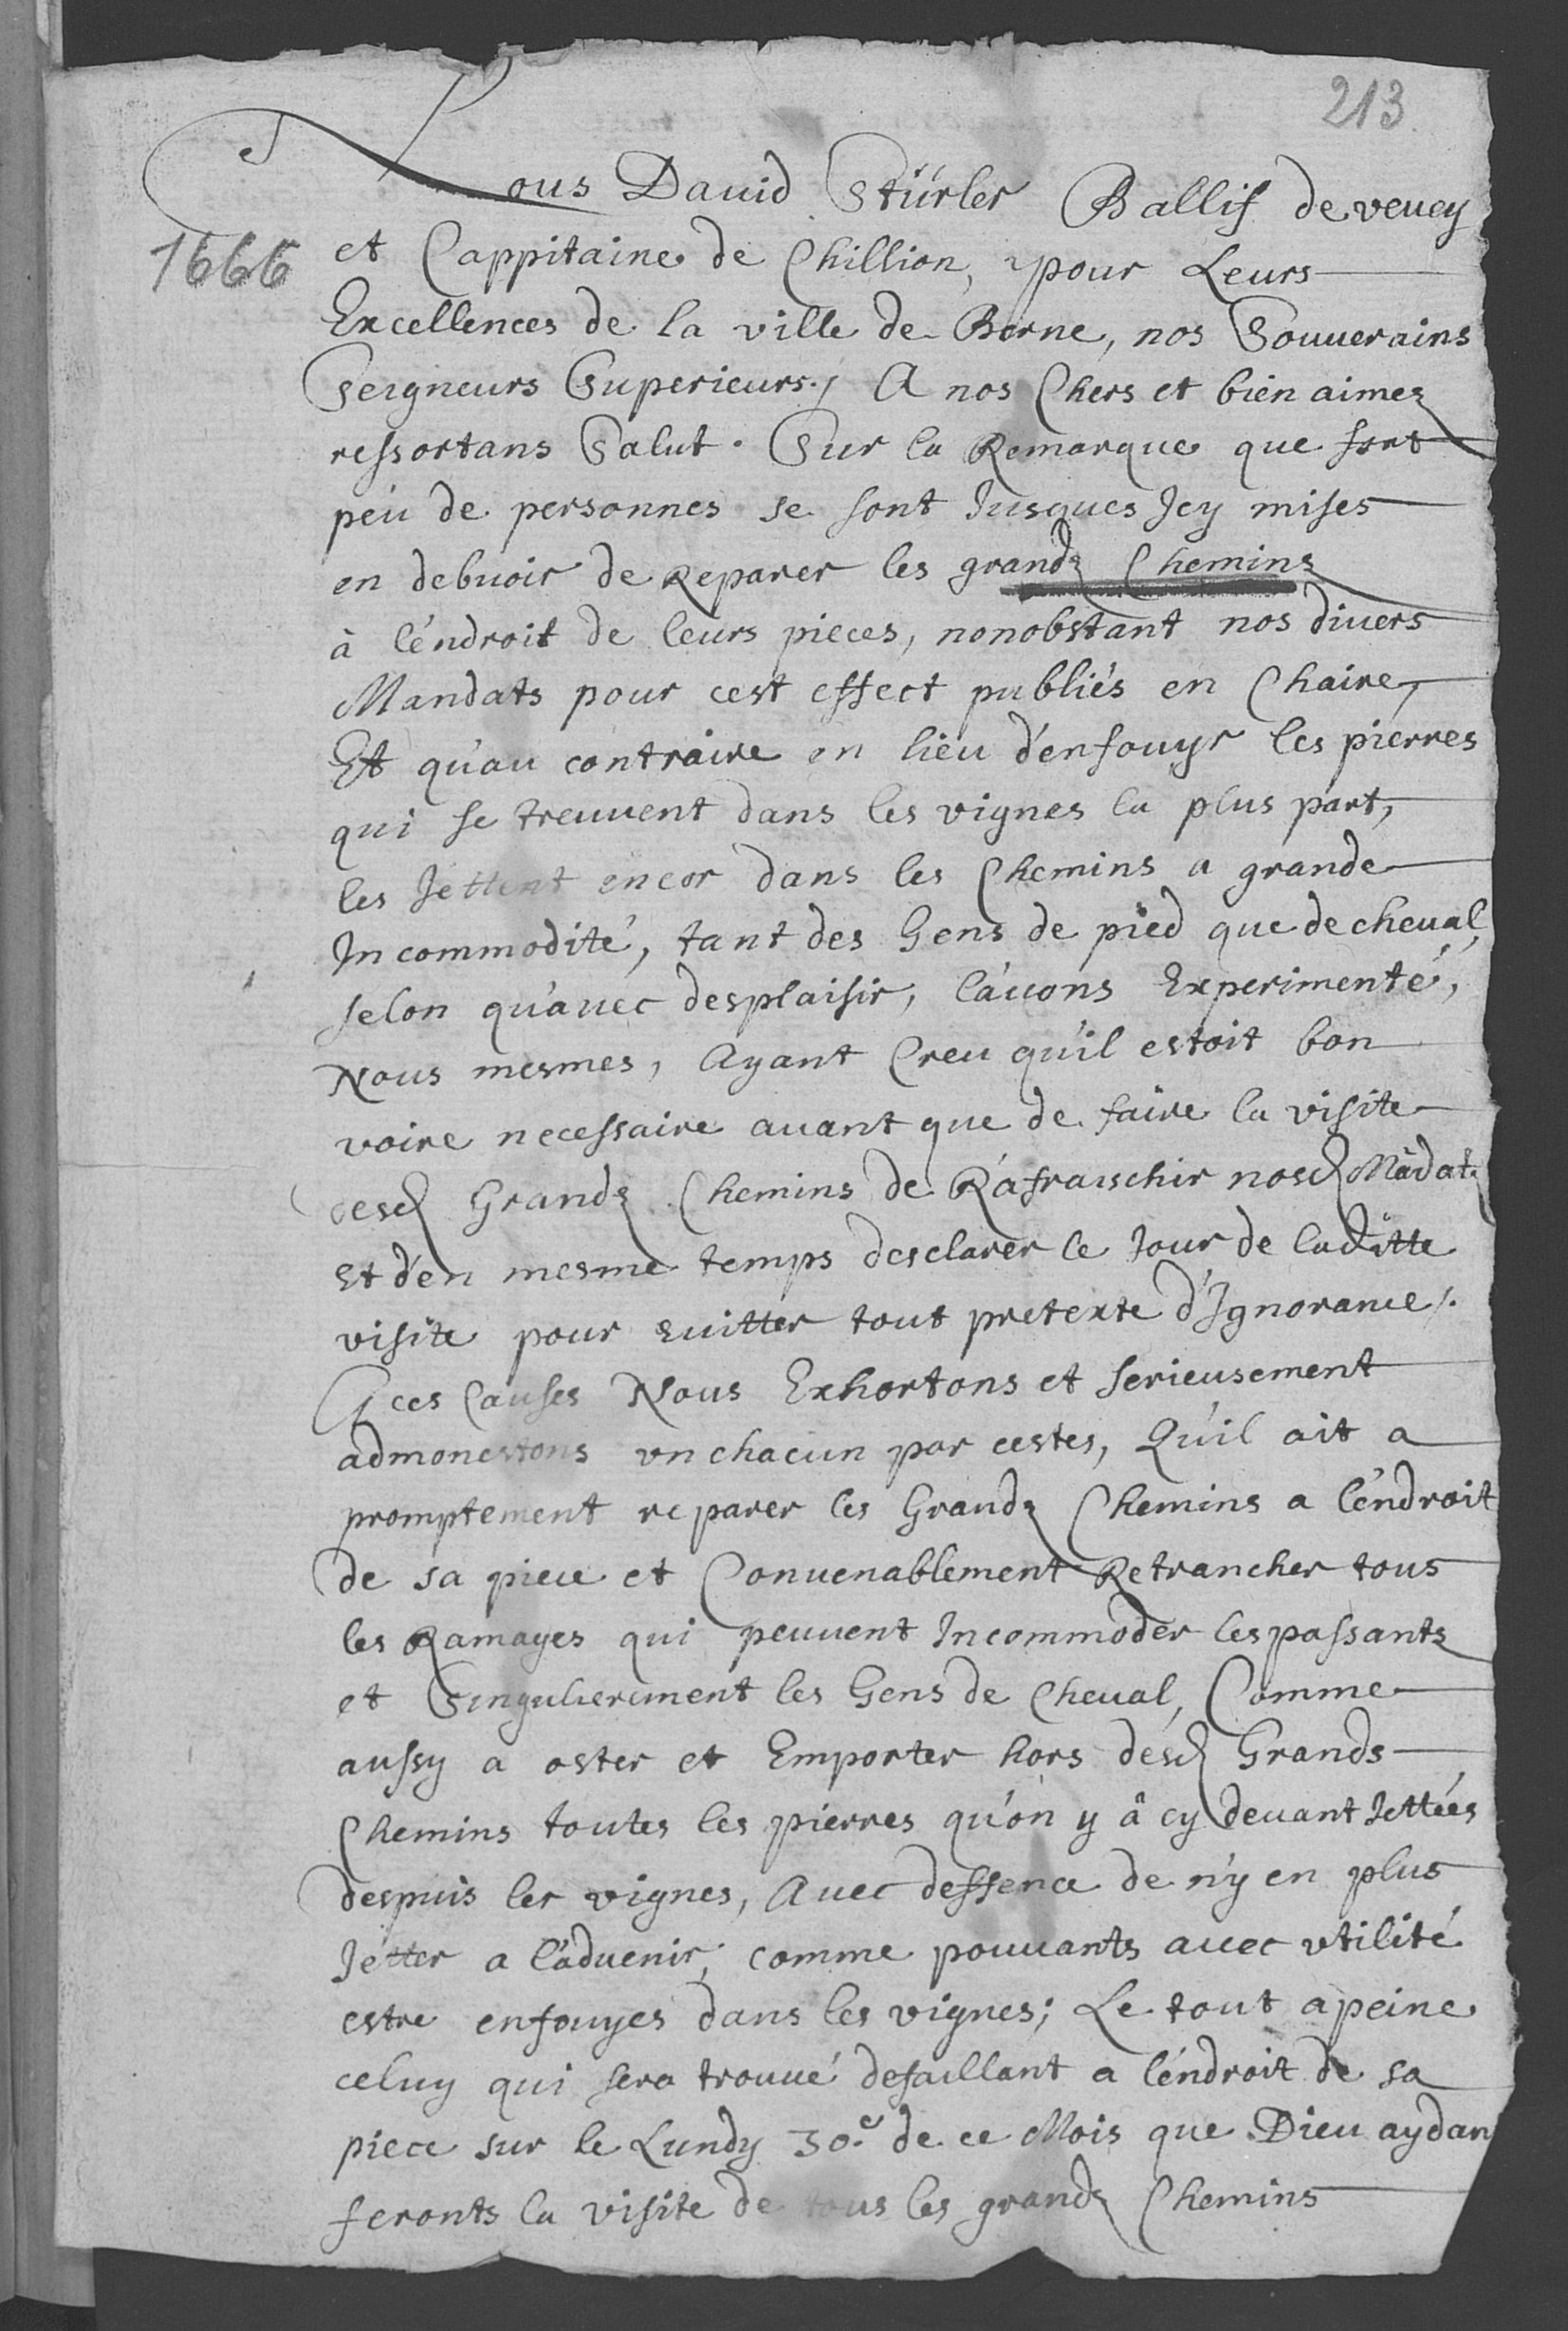 213
Nous Dauid Stürler Ballif de veuey
1666
et Cappitaine de Chillion, pour Leurs
Excellences de la ville de Berne, nos Souuerains
Seigneurs Superieurs./ A nos Chers et bien aimez
ressortans Salut. Sur la Remarque que fort
peu de personnes se sont Jusques Jcy mises
en debuoir de Reparer les grandz Chemins
à l'éndroit de leurs pieces, nonobstant nos diuers
Mandats pour cest effect publiés en Chaire,
Et qu'au contraire en lieu d'enfouyr les pierres
qui se treuuent dans les vignes la plus part,
les Jettent encor dans les Chemins a grande
Incommodité, tant des Gens de pied que de cheual,
selon qu'auec desplaisir, l'auons Experimenté,
Nous mesmes, Ayant Creu qu'il estoit bon
voire necessaire auant que de faire la visite
desd Grandz Chemins de Rafraischir nosd Mãdatz
Et d'en mesme temps desclarer le Jour de laditte
visite pour euitter tout pretexte d'Ignorance/.
A ces Causes Nous Exhortons et serieusement
admonestons vn chacun par cestes, Qu'il ait a
promptement reparer les Grandz Chemins a l'éndroit
de sa piece et Conuenablement Retrancher tous
les Ramages qui peuuent Incommoder les passants
et Singulierement les Gens de Cheual, Comme
aussy a oster et Emporter hors desd Grands
Chemins toutes les pierres qu'on y â cy deuant Jettées
despuis les vignes, Auec deffence de n'y en plus
Jetter a l'aduenir, comme pouuants auec vtilité
estre enfouyes dans les vignes; Le tout a peine
celuy qui sera trouué defaillant a l'éndroit de sa
piece sur le Lundy 30.e de ce Mois que Dieu aydan
feronts la visite de tous les grandz Chemins